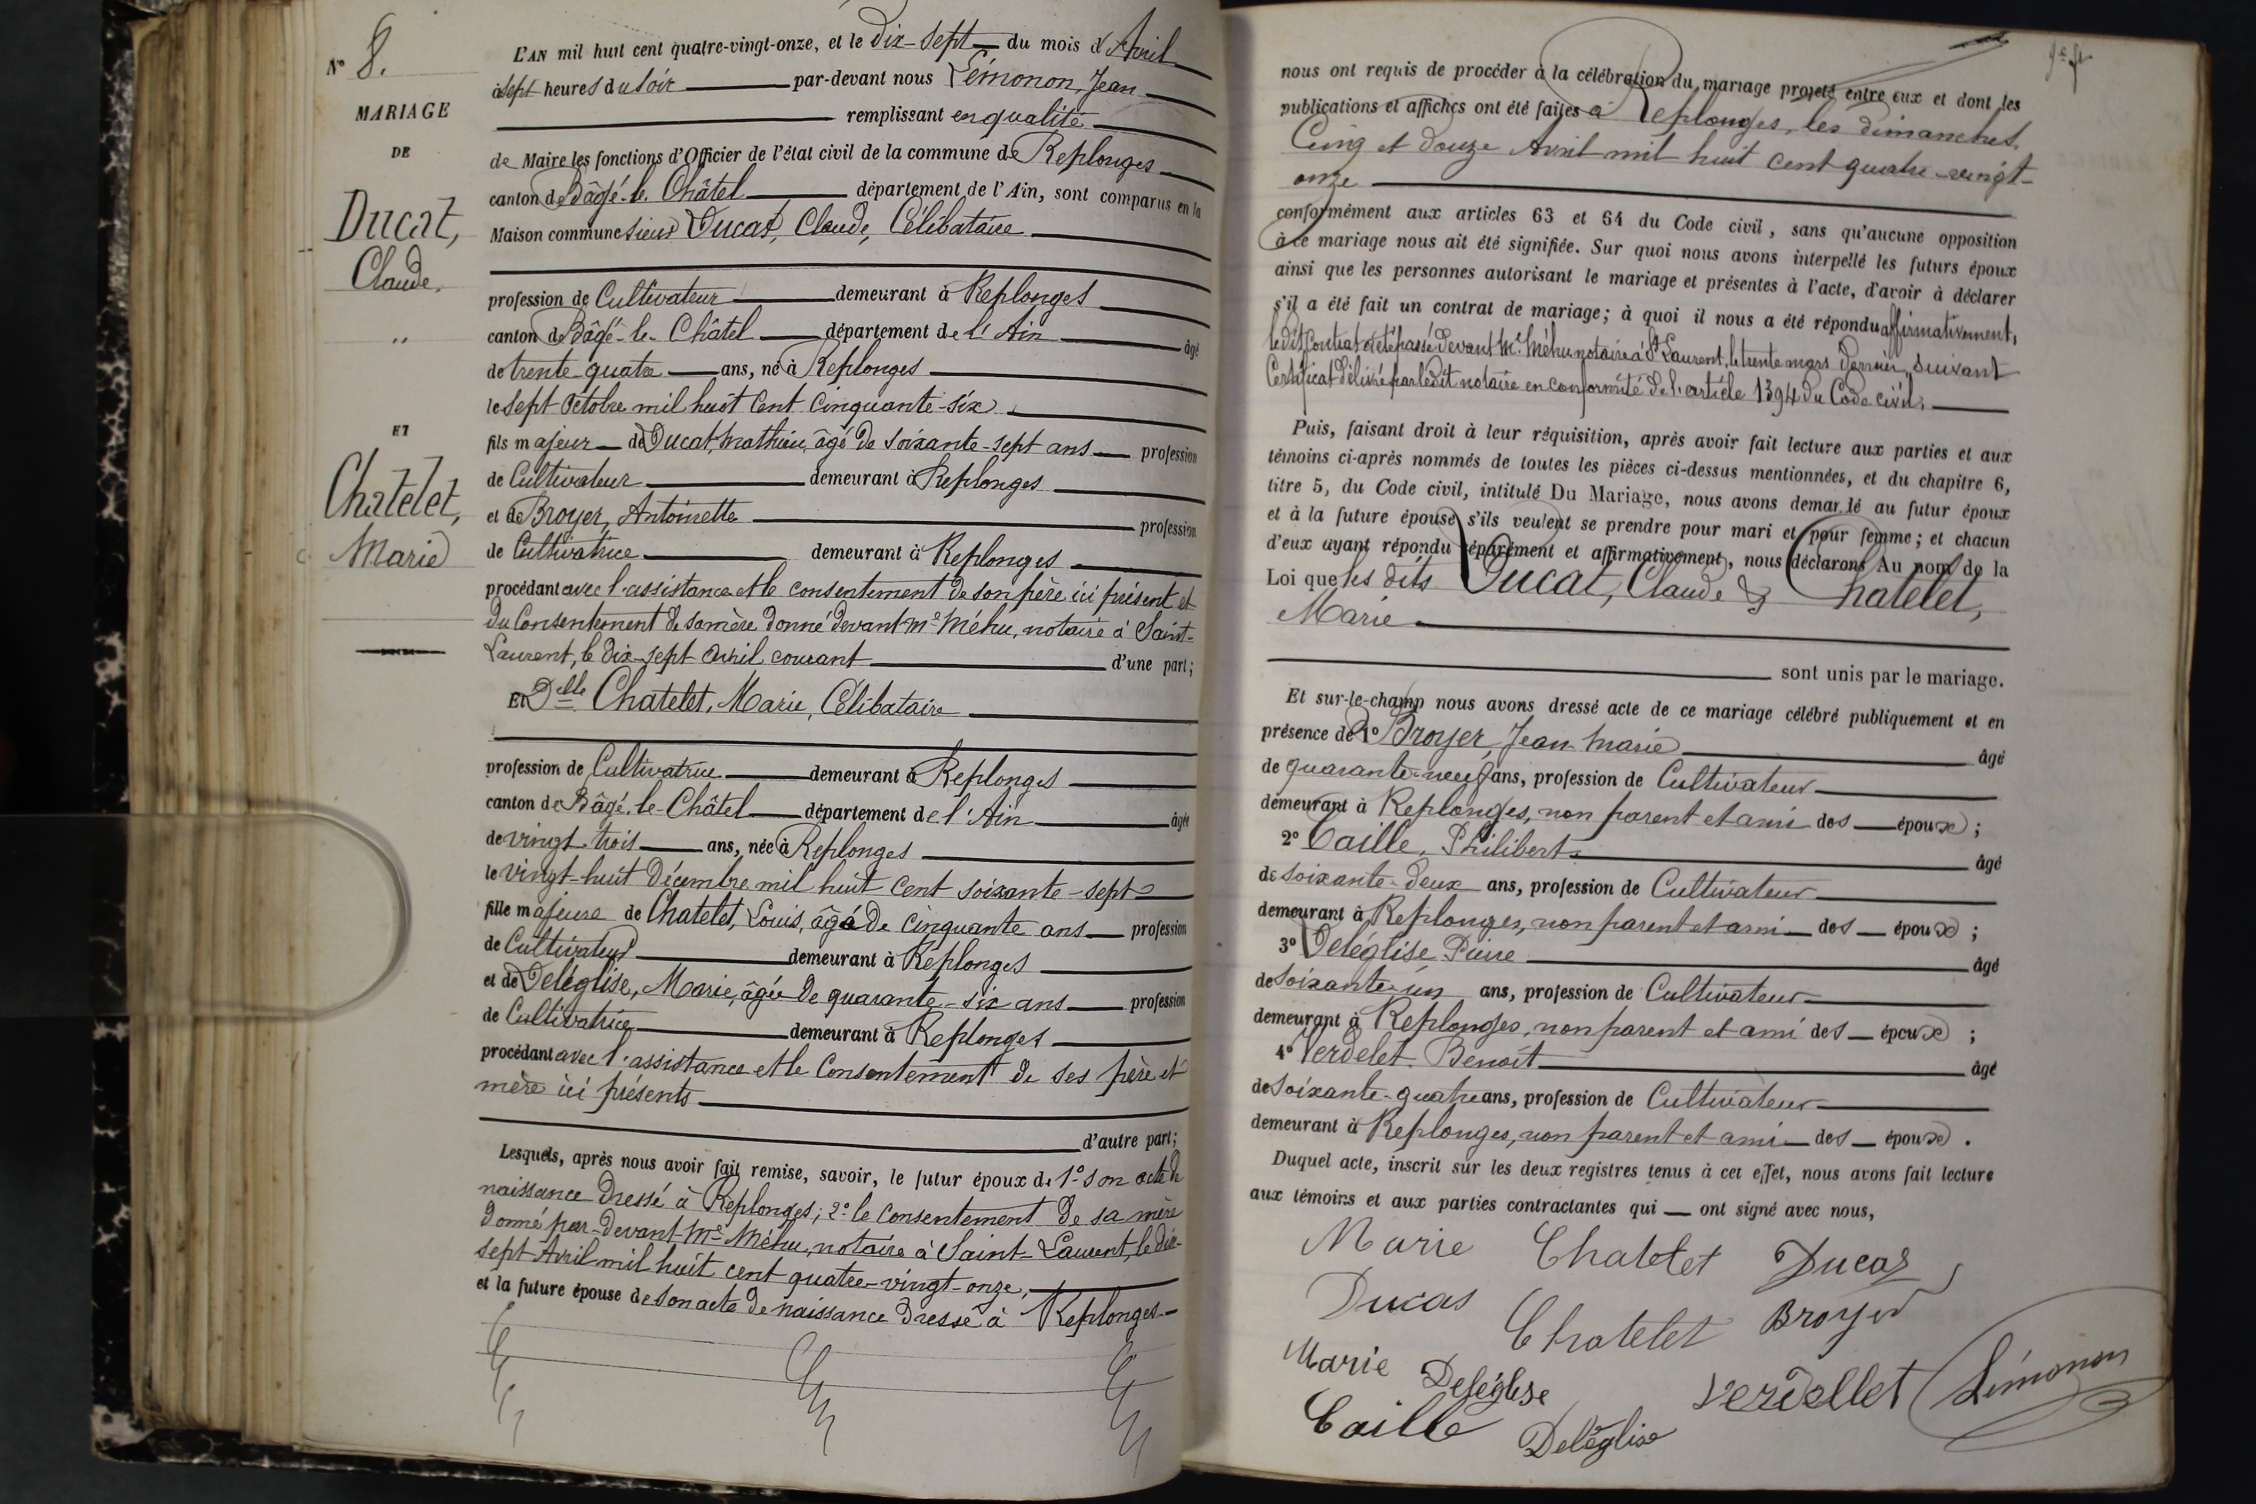 N° 8.
MARIAGE
DE
Ducat,
Claude,
"
ET
Chatelet,
Marie
L'AN mil huit cent quatre-vingt-onze, et le dix-sept du mois d'Avril
à sept heures du soir par-devant nous Lémonon, Jean
remplissant en qualité
de Maire les fonctions d'Officier de l'état civil de la commune de Replonges
canton de Bâgé-le-Châtel département de l'Ain, sont comparus en la
Maison commune sieur Ducat, Claude, Célibataire
profession de Cultivateur demeurant à Replonges
canton de Bâgé-le-Châtel département de l'Ain âgé
de trente-quatre ans, né à Replonges
le sept Octobre mil huit cent cinquante-six
fils majeur de Ducat, Mathieu, âgé de soixante-sept ans profession
de Cultivateur demeurant à Replonges
et de Broyer, Antoinette profession
de Cultivatrice demeurant à Replonges
procédant avec l'assistance et le consentement de son père ici présent et
du consentement de sa mère donné devant Me Méhu, notaire à Saint-
Laurent, le dix-sept avril courant d'une part;
Et Delle Chatelet, Marie, Célibataire
profession de Cultivatrice demeurant à Replonges
canton de Bâgé-le-Châtel département de l'Ain âgée
de vingt-trois ans, née à Replonges
le vingt-huit Décembre mil huit cent soixante-sept
fille majeure de Chatelet, Louis, âgé de cinquante ans profession
de Cultivateur demeurant à Replonges
et de Deléglise, Marie, âgée de quarante-six ans profession
de Cultivatrice demeurant à Replonges
procédant avec l'assistance et le consentement de ses père et
mère ici présents
d'autre part;
Lesquels, après nous avoir fait remise, savoir, le futur époux de 1° son acte de
naissance dressé à Replonges; 2° le consentement de sa mère
donné par-devant Me Méhu, notaire à Saint-Laurent, le dix-
sept Avril mil huit cent quatre-vingt-onze,
et la future épouse de son acte de naissance dressé à Replonges
nous ont requis de procéder à la célébration du mariage projeté entre eux et dont les
publications et affiches ont été faites à Replonges, les dimanches
Cinq et douze Avril mil huit cent quatre-vingt-
onze
conformément aux articles 63 et 64 du Code civil, sans qu'aucune opposition
à ce mariage nous ait été signifiée. Sur quoi nous avons interpellé les futurs époux
ainsi que les personnes autorisant le mariage et présentes à l'acte, d'avoir à déclarer
s'il a été fait un contrat de mariage; à quoi il nous a été répondu affirmativement,
le dit Contrat a été passé devant Me Méhu notaire à St Laurent, le trente mars dernier, suivant
Certificat délivré par ledit notaire en conformité de l'article 1394 du Code civil;
Puis, faisant droit à leur réquisition, après avoir fait lecture aux parties et aux
témoins ci-après nommés de toutes les pièces ci-dessus mentionnées, et du chapitre 6,
titre 5, du Code civil, intitulé Du Mariage, nous avons demandé au futur époux
et à la future épouse s'ils veulent se prendre pour mari et pour femme; et chacun
d'eux ayant répondu séparément et affirmativement, nous déclarons Au nom de la
Loi que les dits Ducat, Claude & Chatelet,
Marie
sont unis par le mariage.
Et sur-le-champ nous avons dressé acte de ce mariage célébré publiquement et en
présence de 1° Broyer, Jean-Marie âgé
de quarante-neuf ans, profession de Cultivateur
demeurant à Replonges, non parent et ami des époux;
2° Caille, Philibert âgé
de soixante-deux ans, profession de Cultivateur
demeurant à Replonges, non parent et ami des époux;
3° Deléglise Pierre âgé
de soixante-un ans, profession de Cultivateur
demeurant à Replonges, non parent et ami des époux;
4° Verdelet Benoit âgé
de soixante-quatre ans, profession de Cultivateur
demeurant à Replonges, non parent et ami des époux.
Duquel acte, inscrit sur les deux registres tenus à cet effet, nous avons fait lecture
aux témoins et aux parties contractantes qui ont signé avec nous,
Marie Chatelet Ducas
Ducas Chatelet Broyer
Marie Deléglise Verdellet Lémonon
Caille Deléglise